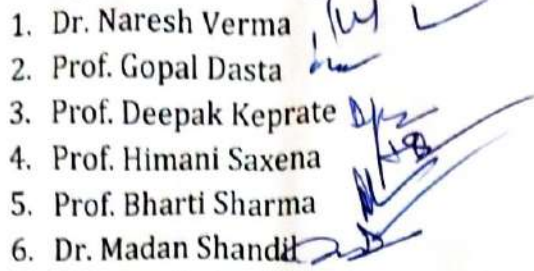 1. Dr. Naresh Verma
2. Prof. Gopal Dasta
3. Prof. Deepak Keprate
4. Prof. Himani Saxena
5. Prof. Bharti Sharma
6. Dr. Madan Shandil